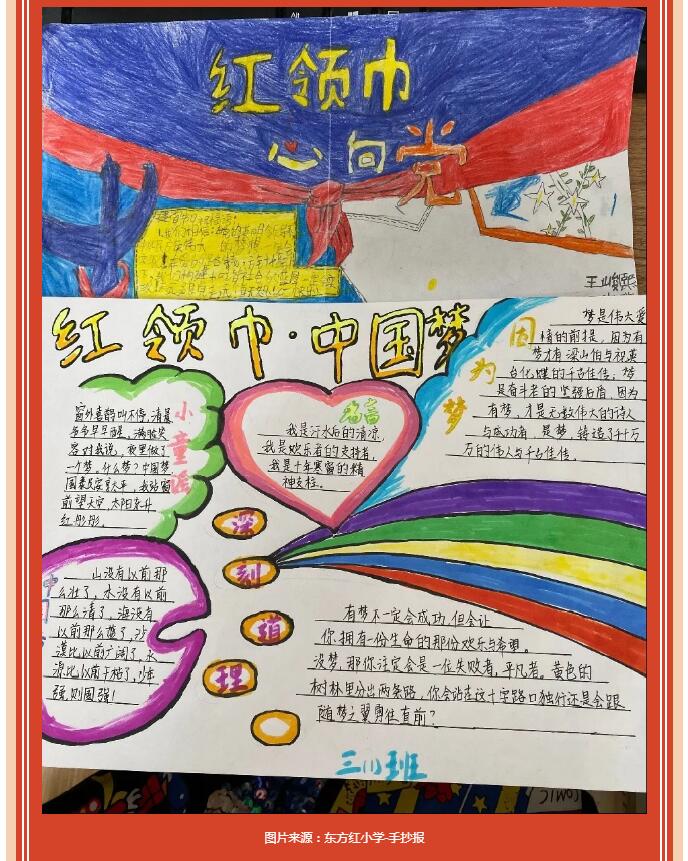 红领巾
心向党
王山毅熙
红领巾·中国梦
小童谣
窗外喜鹊叫不停,清晨
爷爷早早醒,满脸笑
容对我说,夜里做了
一个梦,什么梦?中国梦
国泰民安享太平,我站窗
前望天空,太阳东升
红彤彤。
福音
我是汗水后的清凉,
我是欢乐者的支持者,
我是十年寒窗的精
神支柱。
因为梦
梦是伟大爱
情的前提,因为有
梦才有梁山伯与祝英
台化蝶的千古佳传。梦
是奋斗者的坚强后盾,因为
有梦,才是无数伟大的诗人
与成功者,是梦,铸造了千千万
万的伟人与千古佳传。
深刻道理
山没有以前那
么壮了,水没有以前
那么清了,海没有
以前那么蓝了,沙
漠比以前广阔了,水
源比以前干枯了,少年
强,则国强!
有梦不一定会成功,但会让
你拥有一份生命的那份欢乐与希望。
没梦,那你注定会是一位失败者,平凡者。黄色的
树林里分出两条路,你会站在这十字路口独行还是会跟
随梦之翼勇往直前?
三(1)班
COMIC
图片来源：东方红小学-手抄报